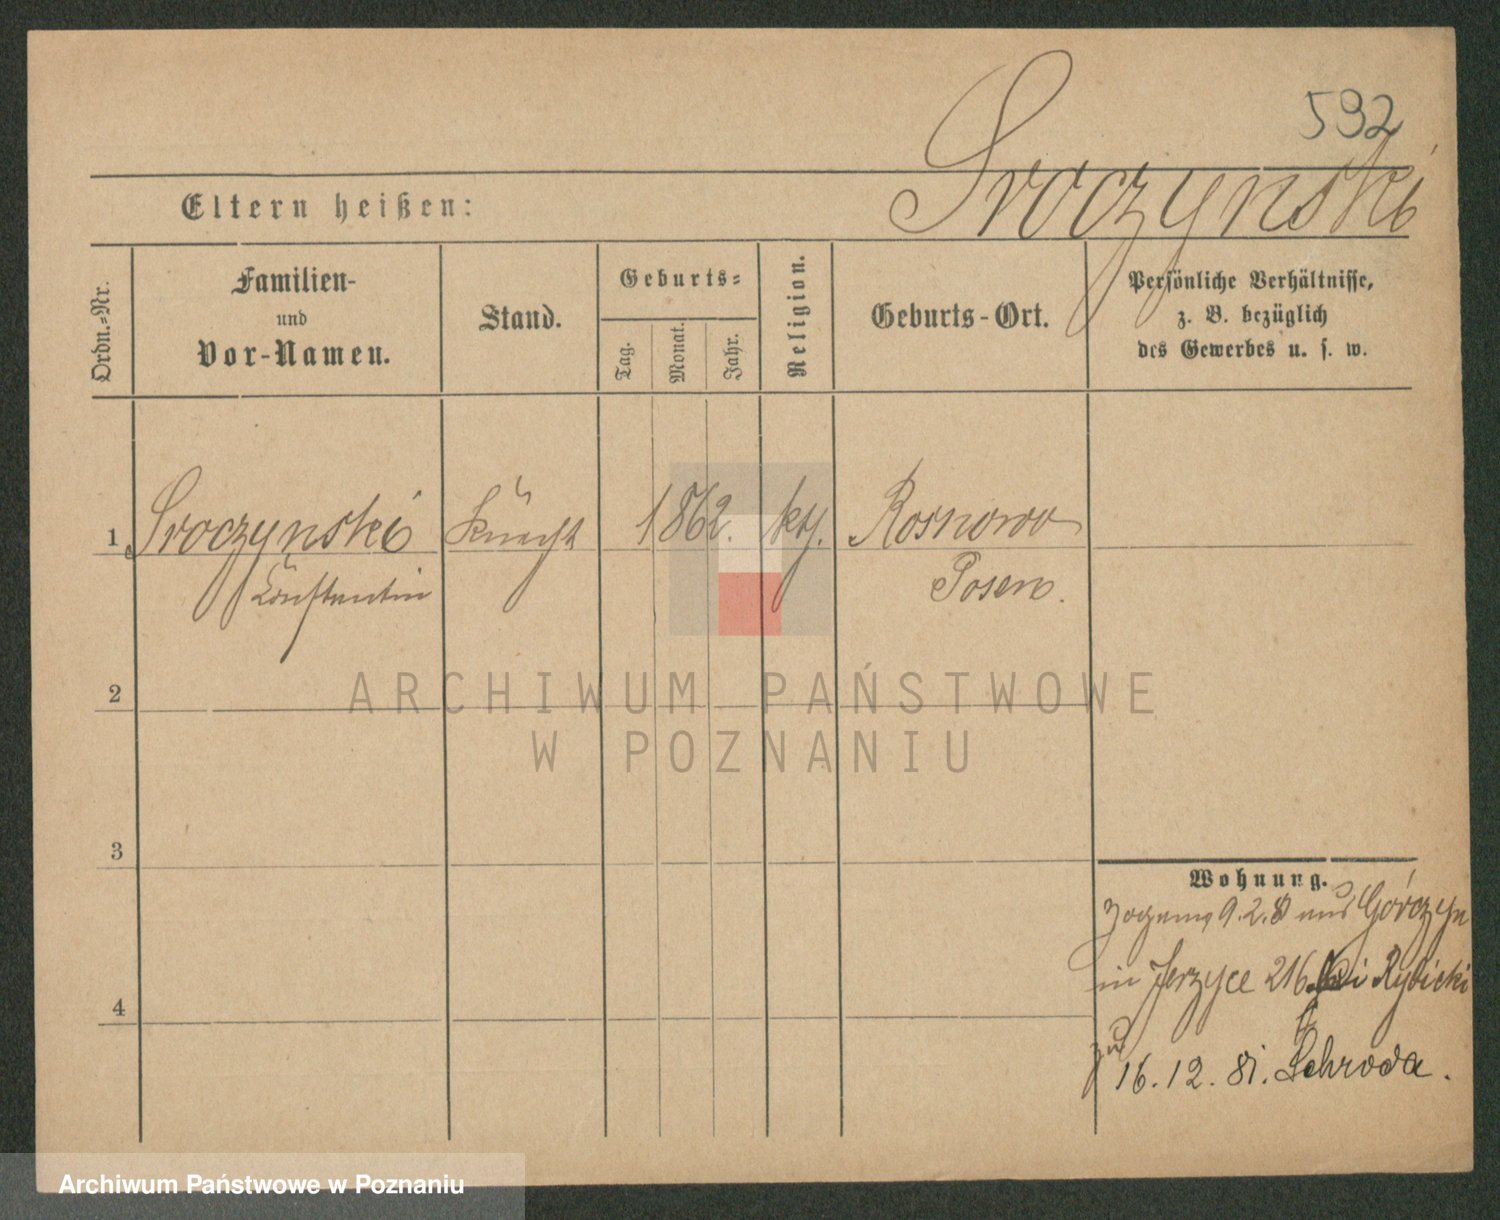 592
Sroczynski
Eltern heißen:
Ordn.-Nr.
Familien-
und
Vor-Namen.
Stand.
Geburts-
Tag.
Monat.
Jahr.
Religion.
Geburts-Ort.
Persönliche Verhältnisse,
z. B. bezüglich
des Gewerbes u. s. w.
1 Sroczynski Knecht 1862. kth. Rosnowo
Constantin Posen.
2
ARCHIWUM PAŃSTWOWE
W POZNANIU
3
4
Wohnung.
9.2.8 aus Górczyn
in Jerzyce 216 bei Rybicki
zu
16.12.81. Schroda.
Archiwum Państwowe w Poznaniu